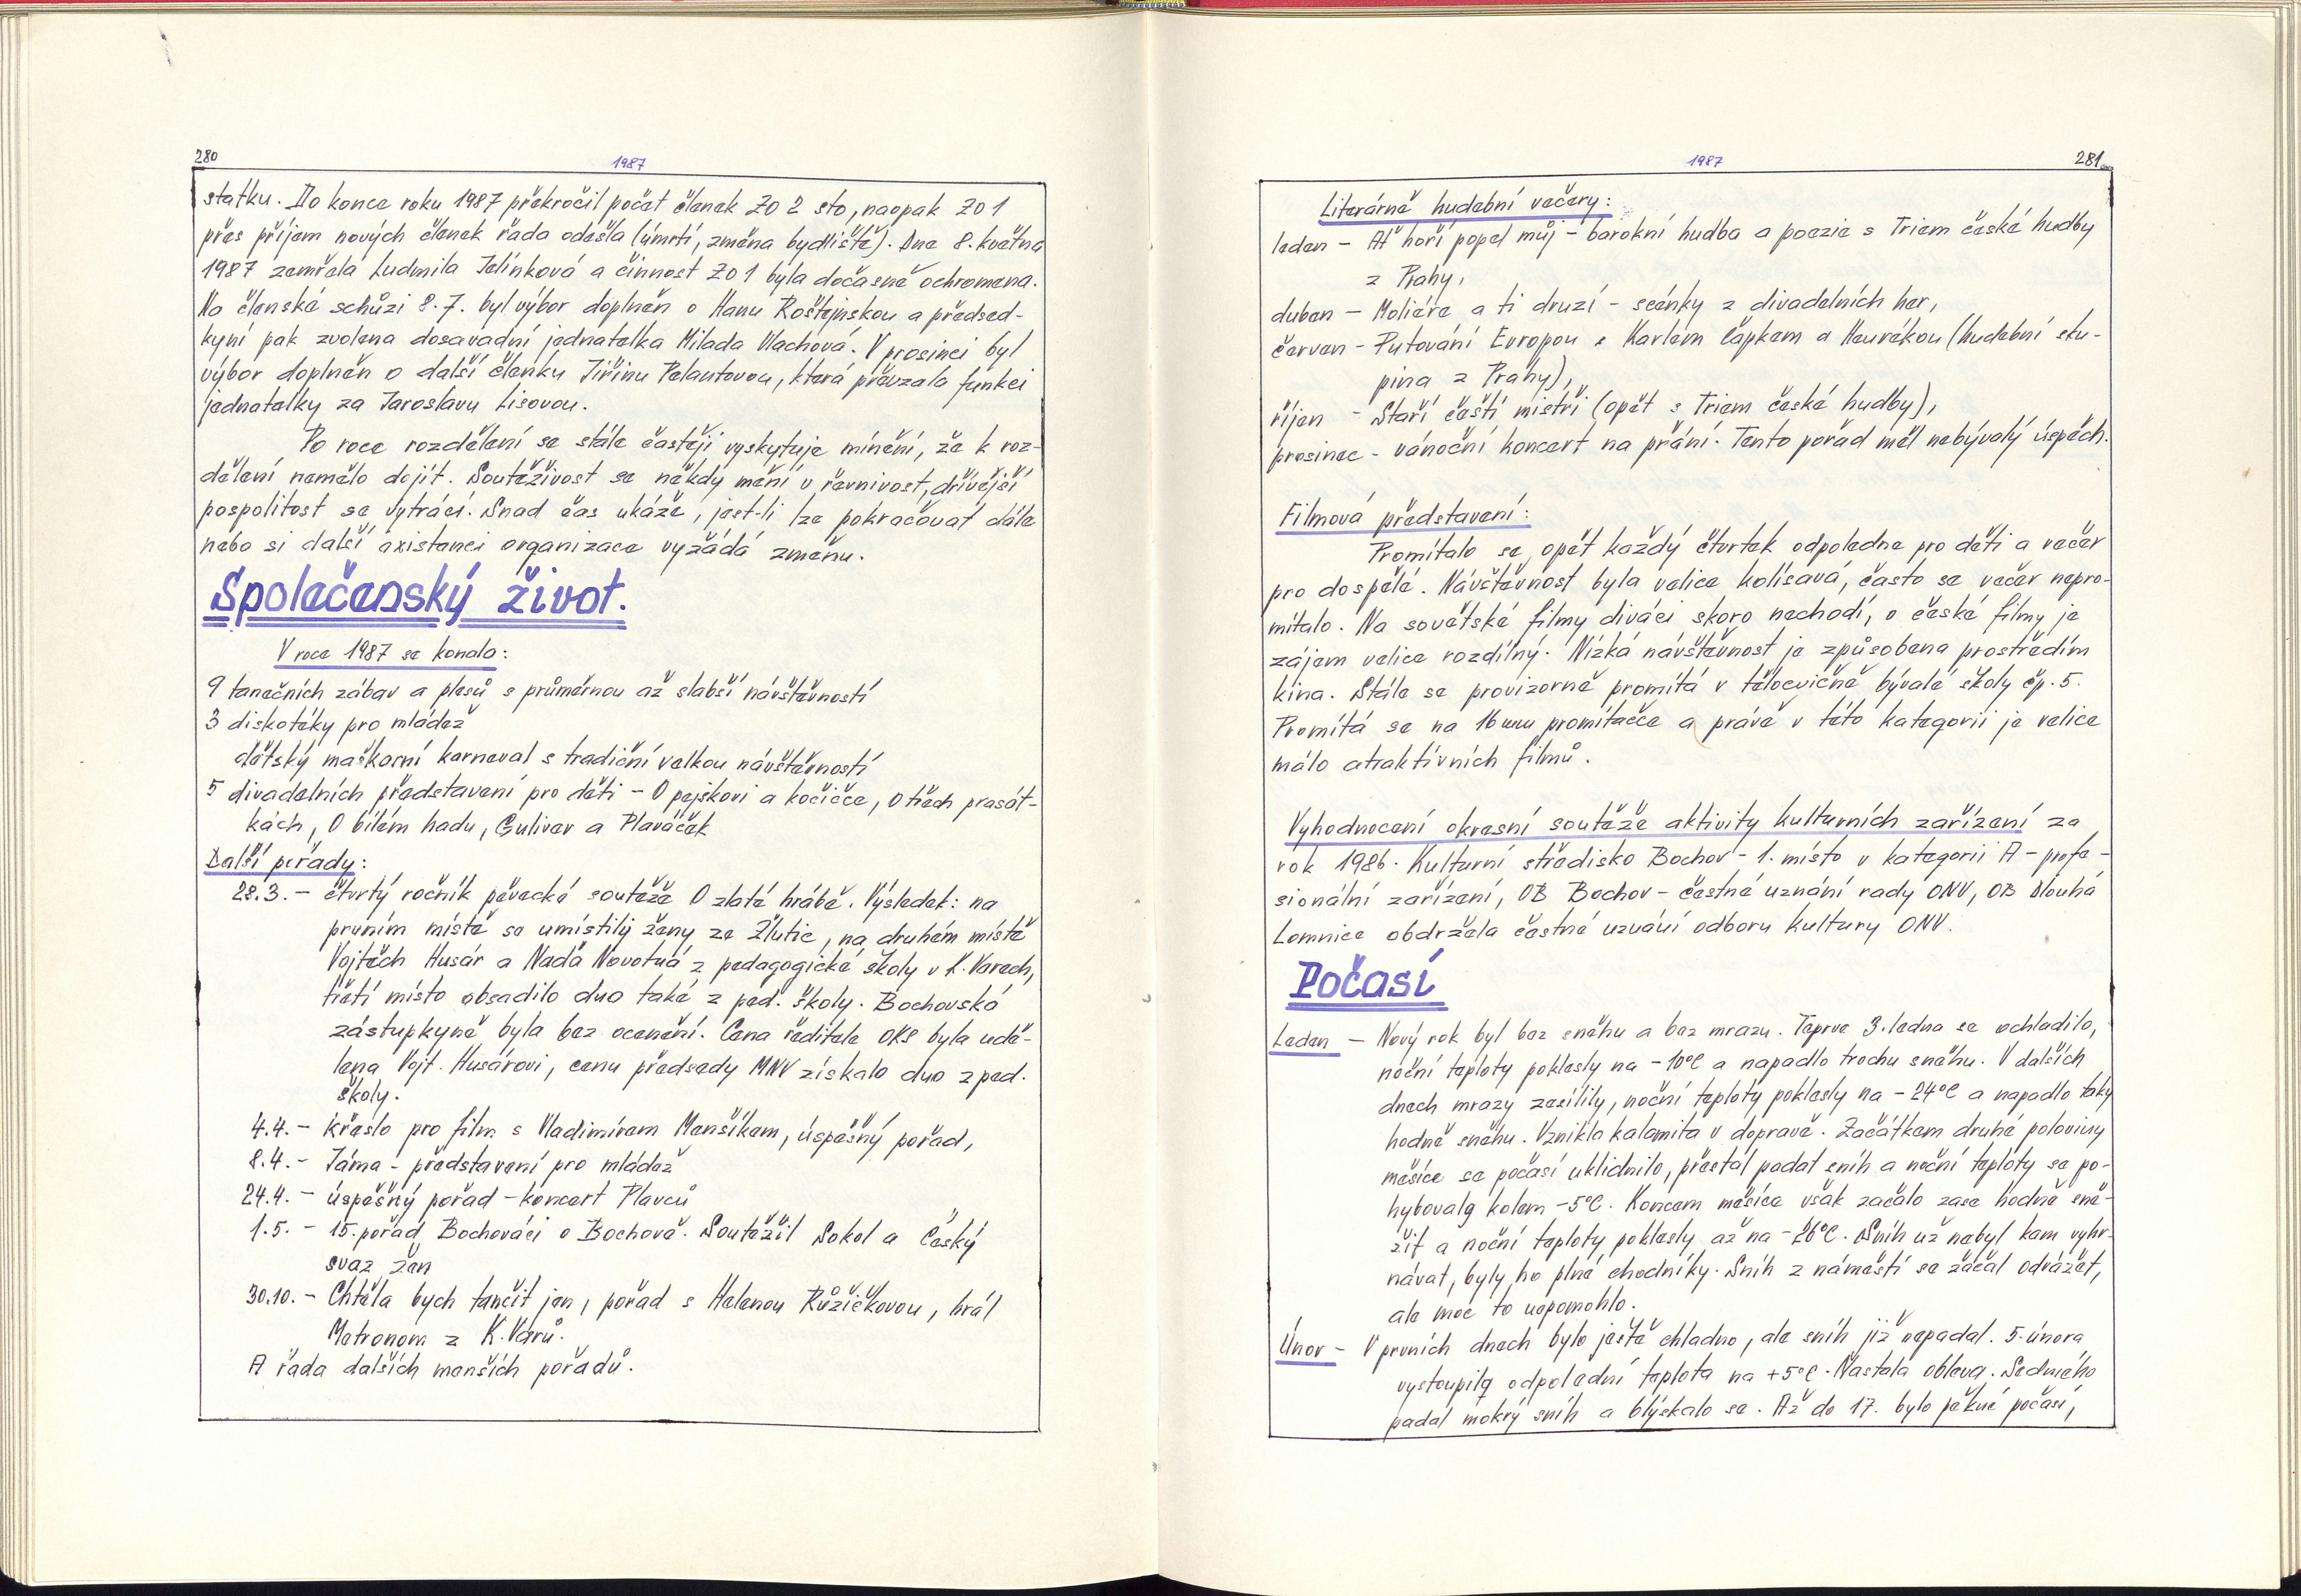 280
1987
statku. Do konce roku 1987 překročil počet členek ZO 2 sto, naopak ZO 1
přes příjem nových členek řada odešla (úmrtí, změna bydliště). Dne 8. května
1987 zemřela Ludmila Jelínková a činnost ZO 1 byla dočasně ochromena.
Na členské schůzi 8.7. byl výbor doplněn o Hanu Roštejnskou a předsed-
kyní pak zvolena dosavadní jednatelka Milada Vlachová. V prosinci byl
výbor doplněn o další členku Jiřinu Pelantovou, která převzala funkci
jednatelky za Jaroslavu Lisovou.
Po roce rozdělení se stále častěji vyskytuje mínění, že k roz-
dělení nemělo dojít. Soutěživost se někdy mění v řevnivost, dřívější
pospolitost se vytrácí. Snad čas ukáže, jest-li lze pokračovat dále
nebo si další existenci organizace vyžádá změnu.
Společenský život.
V roce 1987 se konalo:
9 tanečních zábav a plesů s průměrnou až slabší návštěvností
3 diskotéky pro mládež
dětský maškarní karneval s tradiční velkou návštěvností
5 divadelních představení pro děti - O pejskovi a kočičce, O třech prasát-
kách, O bílém hadu, Guliver a Plaváček
Další pořady:
28.3. - čtvrtý ročník pěvecké soutěže O zlaté hrábě. Výsledek: na
prvním místě se umístily ženy ze Žlutic, na druhém místě
Vojtěch Husár a Naďa Novotná z pedagogické školy v K. Varech,
třetí místo obsadilo duo také z ped. školy. Bochovská
zástupkyně byla bez ocenění. Cena ředitele OKS byla udě-
lena Vojt. Husárovi, cenu předsedy MNV získalo duo z ped.
školy.
4.4. - křeslo pro film s Vladimírem Menšíkem, úspěšný pořad,
8.4. - Jáma - představení pro mládež
24.4. - úspěšný pořad - koncert Plavců
1.5. - 15. pořad Bochováci o Bochově. Soutěžil Sokol a Český
svaz žen
30.10. - Chtěla bych tančit jen, pořad s Helenou Růžičkovou, hrál
Metronom z K. Varů.
A řada dalších menších pořadů.
1987
281
Literárně hudební večery:
leden - Ať hoří popel můj - barokní hudba a poezie s Triem české hudby
z Prahy,
duben - Moliére a ti druzí - scénky z divadelních her,
červen - Putování Evropou s Karlem Čapkem a Heurékou (hudební sku-
pina z Prahy),
říjen - Staří čeští mistři (opět s Triem české hudby),
prosinec - vánoční koncert na přání. Tento pořad měl nebývalý úspěch.
Filmová představení:
Promítalo se opět každý čtvrtek odpoledne pro děti a večer
pro dospělé. Návštěvnost byla velice kolísavá, často se večer nepro-
mítalo. Na sovětské filmy diváci skoro nechodí, o české filmy je
zájem velice rozdílný. Nízká návštěvnost je způsobena prostředím
kina. Stále se provizorně promítá v tělocvičně bývalé školy čp. 5.
Promítá se na 16 mm promítačce a právě v této kategorii je velice
málo atraktívních filmů.
Vyhodnocení okresní soutěže aktivity kulturních zařízení za
rok 1986. Kulturní středisko Bochov - 1. místo v kategorii A - profe-
sionální zařízení, OB Bochov - čestné uznání rady ONV, OB Dlouhá
Lomnice obdržela čestné uznání odboru kultury ONV.
Počasí
Leden - Nový rok byl bez sněhu a bez mrazu. Teprve 3. ledna se ochladilo,
noční teploty poklesly na -10°C a napadlo trochu sněhu. V dalších
dnech mrazy zesílily, noční teploty poklesly na -24°C a napadlo taky
hodně sněhu. Vznikla kalamita v dopravě. Začátkem druhé poloviny
měsíce se počasí uklidnilo, přestal padat sníh a noční teploty se po-
hybovaly kolem -5°C. Koncem měsíce však začalo zase hodně sně-
žit a noční teploty poklesly až na -26°C. Sníh už nebyl kam vyhr-
návat, byly ho plné chodníky. Sníh z náměstí se začal odvážet,
ale moc to nepomohlo.
Únor - V prvních dnech bylo ještě chladno, ale sníh již nepadal. 5. února
vystoupila odpolední teplota na +5°C. Nastala obleva. Sedmého
padal mokrý sníh a blýskalo se. Až do 17. bylo pěkné počasí,